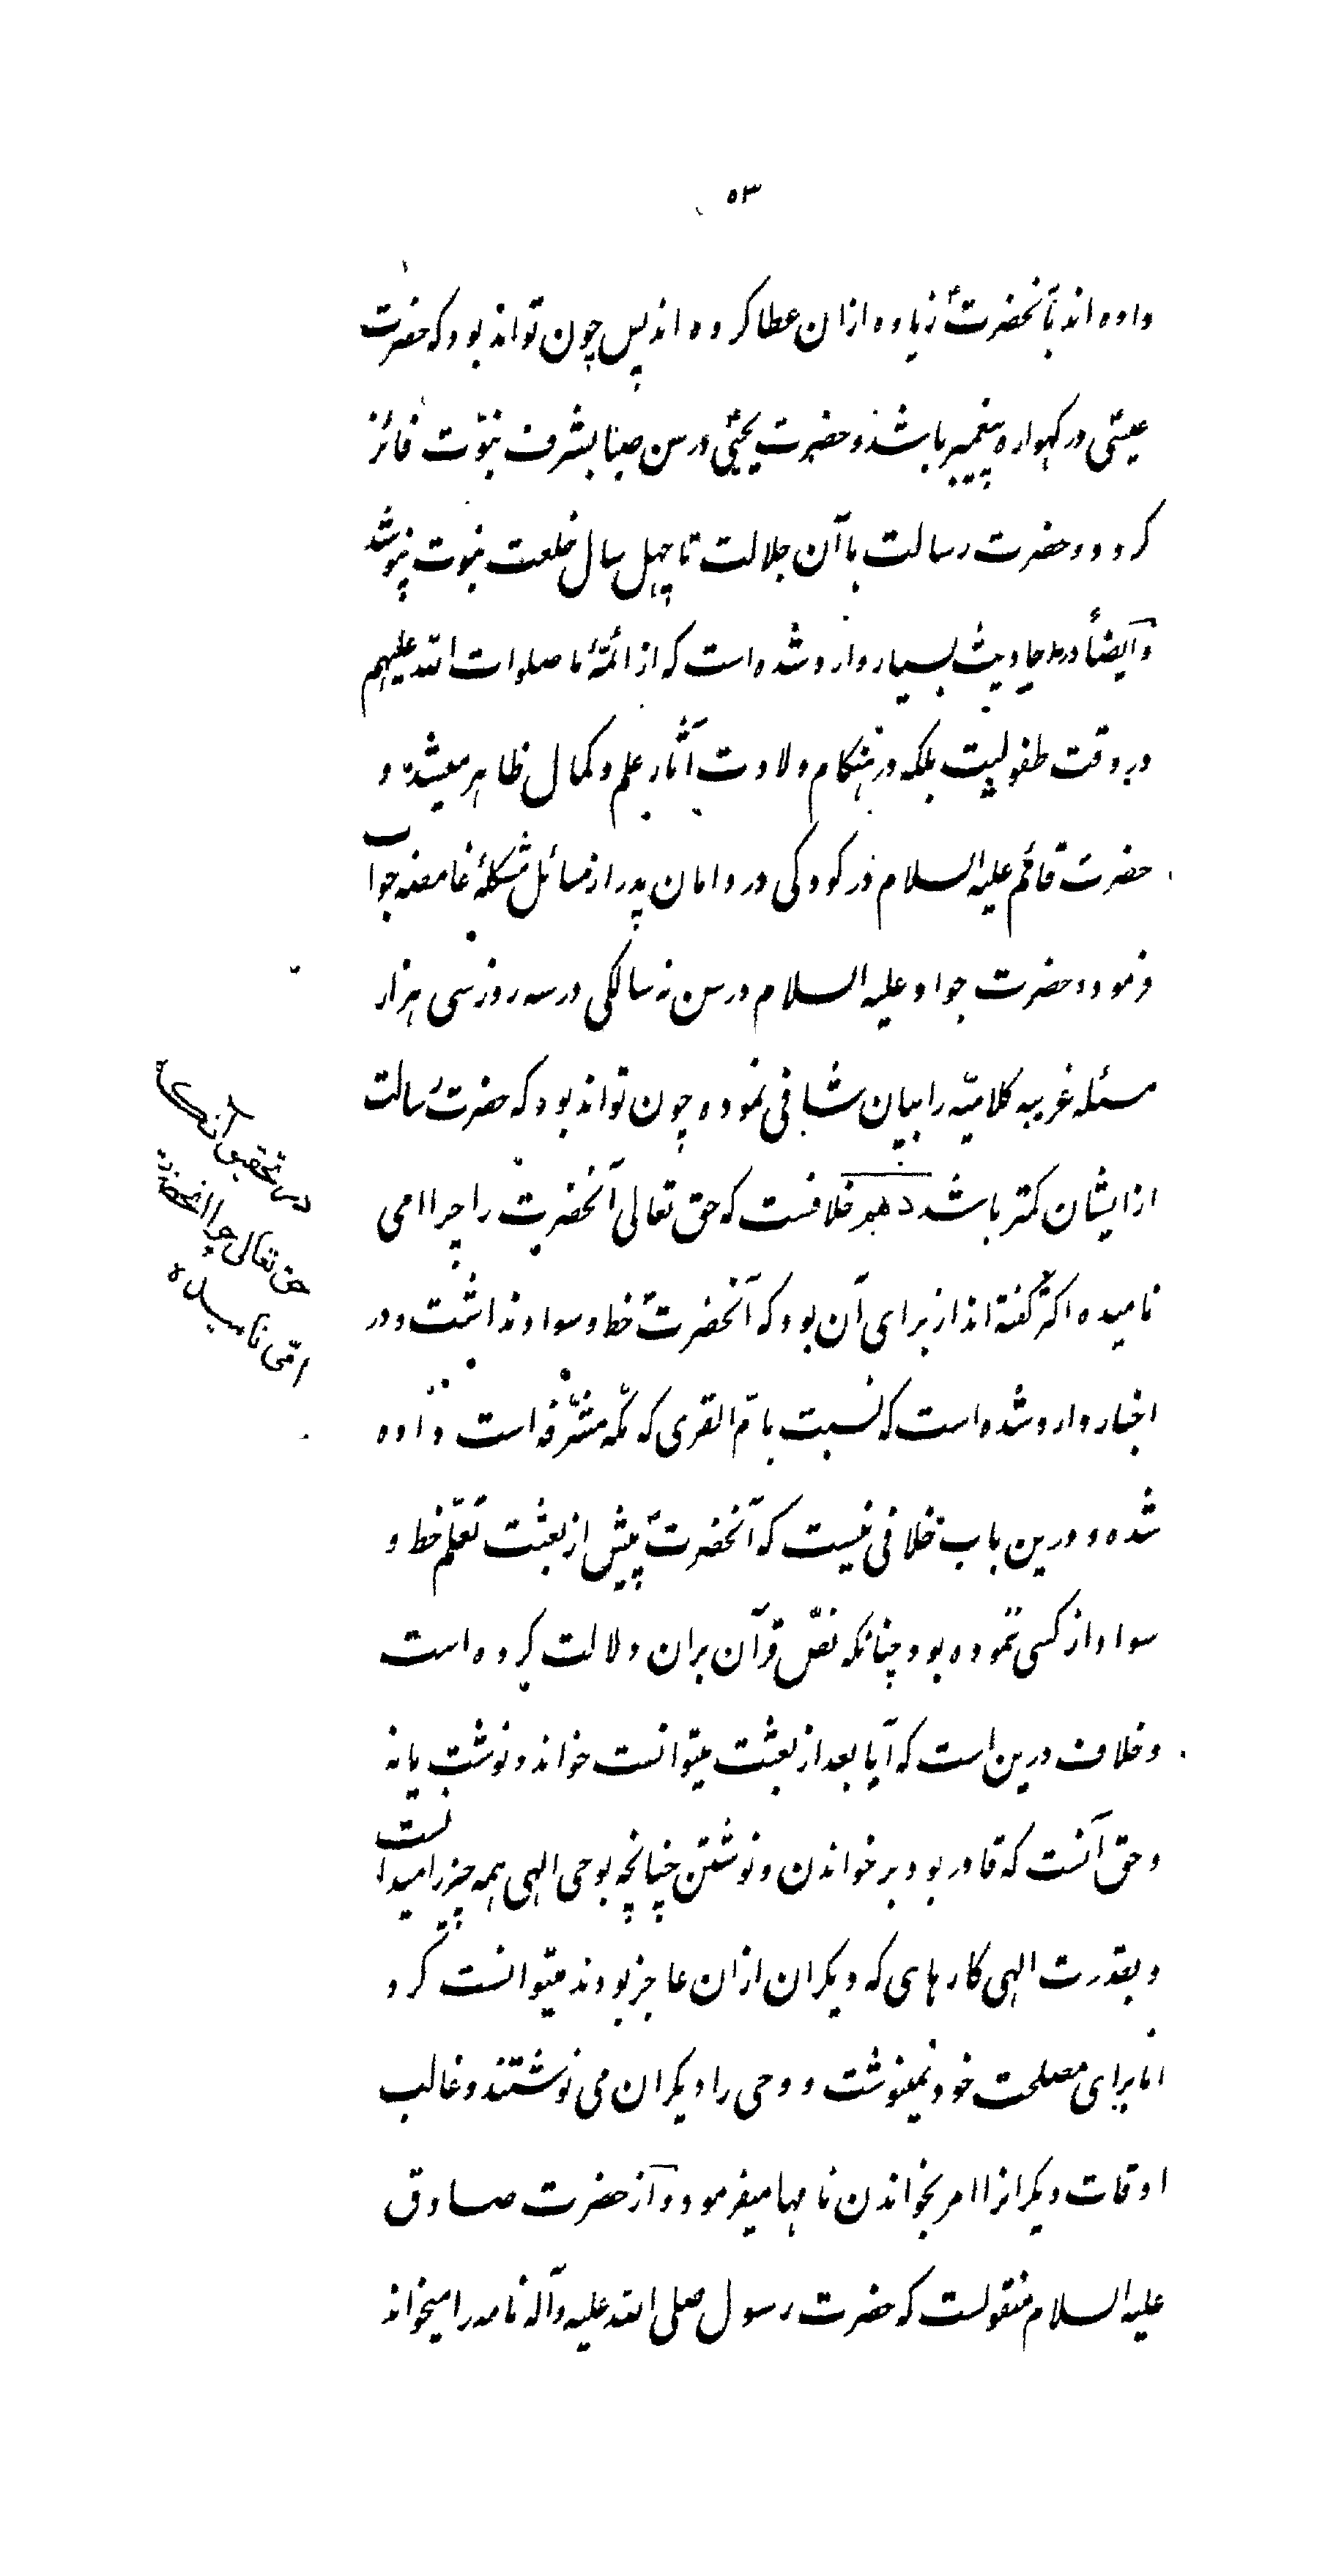 ۵۳
داده اند بآنحضرتؐ زیاده ازان عطا کرده اند پس چون تواند بود که حضرت
عیسیٰ در کهواره پیغمبر باشد و حضرت یحییٰ در سن صبا بشرف نبوّت فائز
کردد و حضرت رسالت با آن جلالت تا چهل سال خلعت نبوت نپوشد
و ایضاً در احادیث بسیار وارد شده است که از ائمّهٔ ما صلوات الله علیهم
در وقت طفولیت بلکه در هنکام ولادت آثار علم و کمال ظاهر میشد و
حضرت قائم علیه السلام در کودکی در دامان پدر از مسائل مشکلهٔ غامضه جواب
فرمود و حضرت جواد علیه السلام در سن نه سالکی در سه روز سی هزار
مسئله غریبه کلامیّه را بیان شافی نموده چون تواند بود که حضرت رسالت
از ایشان کمتر باشد و خلافست که حق تعالی آنحضرت را چرا امی
نامیده اکثر کفته اند از برای آن بود که آنحضرتؐ خط و سواد نداشت و در
اخبار وارد شده است که نسبت بامّ القری که مکّه مشرّفه است داده
شده و درین باب خلافی نیست که آنحضرتؐ پیش از بعثت تعلّم خط و
سواد از کسی ننموده بود چنانکه نصّ قرآن بران دلالت کرده است
و خلاف درین است که آیا بعد از بعثت میتوانست خواند و نوشت یا نه
و حق آنست که قادر بود بر خواندن و نوشتن چنانچه بوحی الهی همه چیز را میدانست
و بقدرت الهی کارهای که دیکران ازان عاجز بودند میتوانست کرد
امّا برای مصلحت خود نمینوشت و وحی را دیکران می نوشتند و غالب
اوقات دیکرانرا امر بخواندن نامها میفرمود و از حضرت صادق
علیه السلام منقولست که حضرت رسول صلی الله علیه و آله نامه را میخواند
در تحقیق آنکه
حق تعالی چرا آنحضرت
امّی نامیده